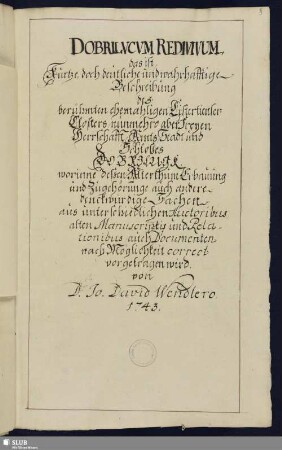 DOBRILUCUM REDIVIVUM
das ist
Kurtze doch deutliche und wahrhafftige
Beschreibung
des
berühmten ehemahligen Cistertienser
Closters nunmehro aber Freyen
Herrschafft Ambts Stadt und
Schloßes
DOBRILUGK
worinne deßen Alterthum Erbauung
und Zugehörunge auch andere
denckwürdige Sachen
aus unterschiedlichen Autoribus
alten Manuscriptis und Rela-
tionibus auch Documenten
nach Möglichkeit correct
vorgetragen wird.
von
D. Jo. David Wendlero
1743.
SLUB